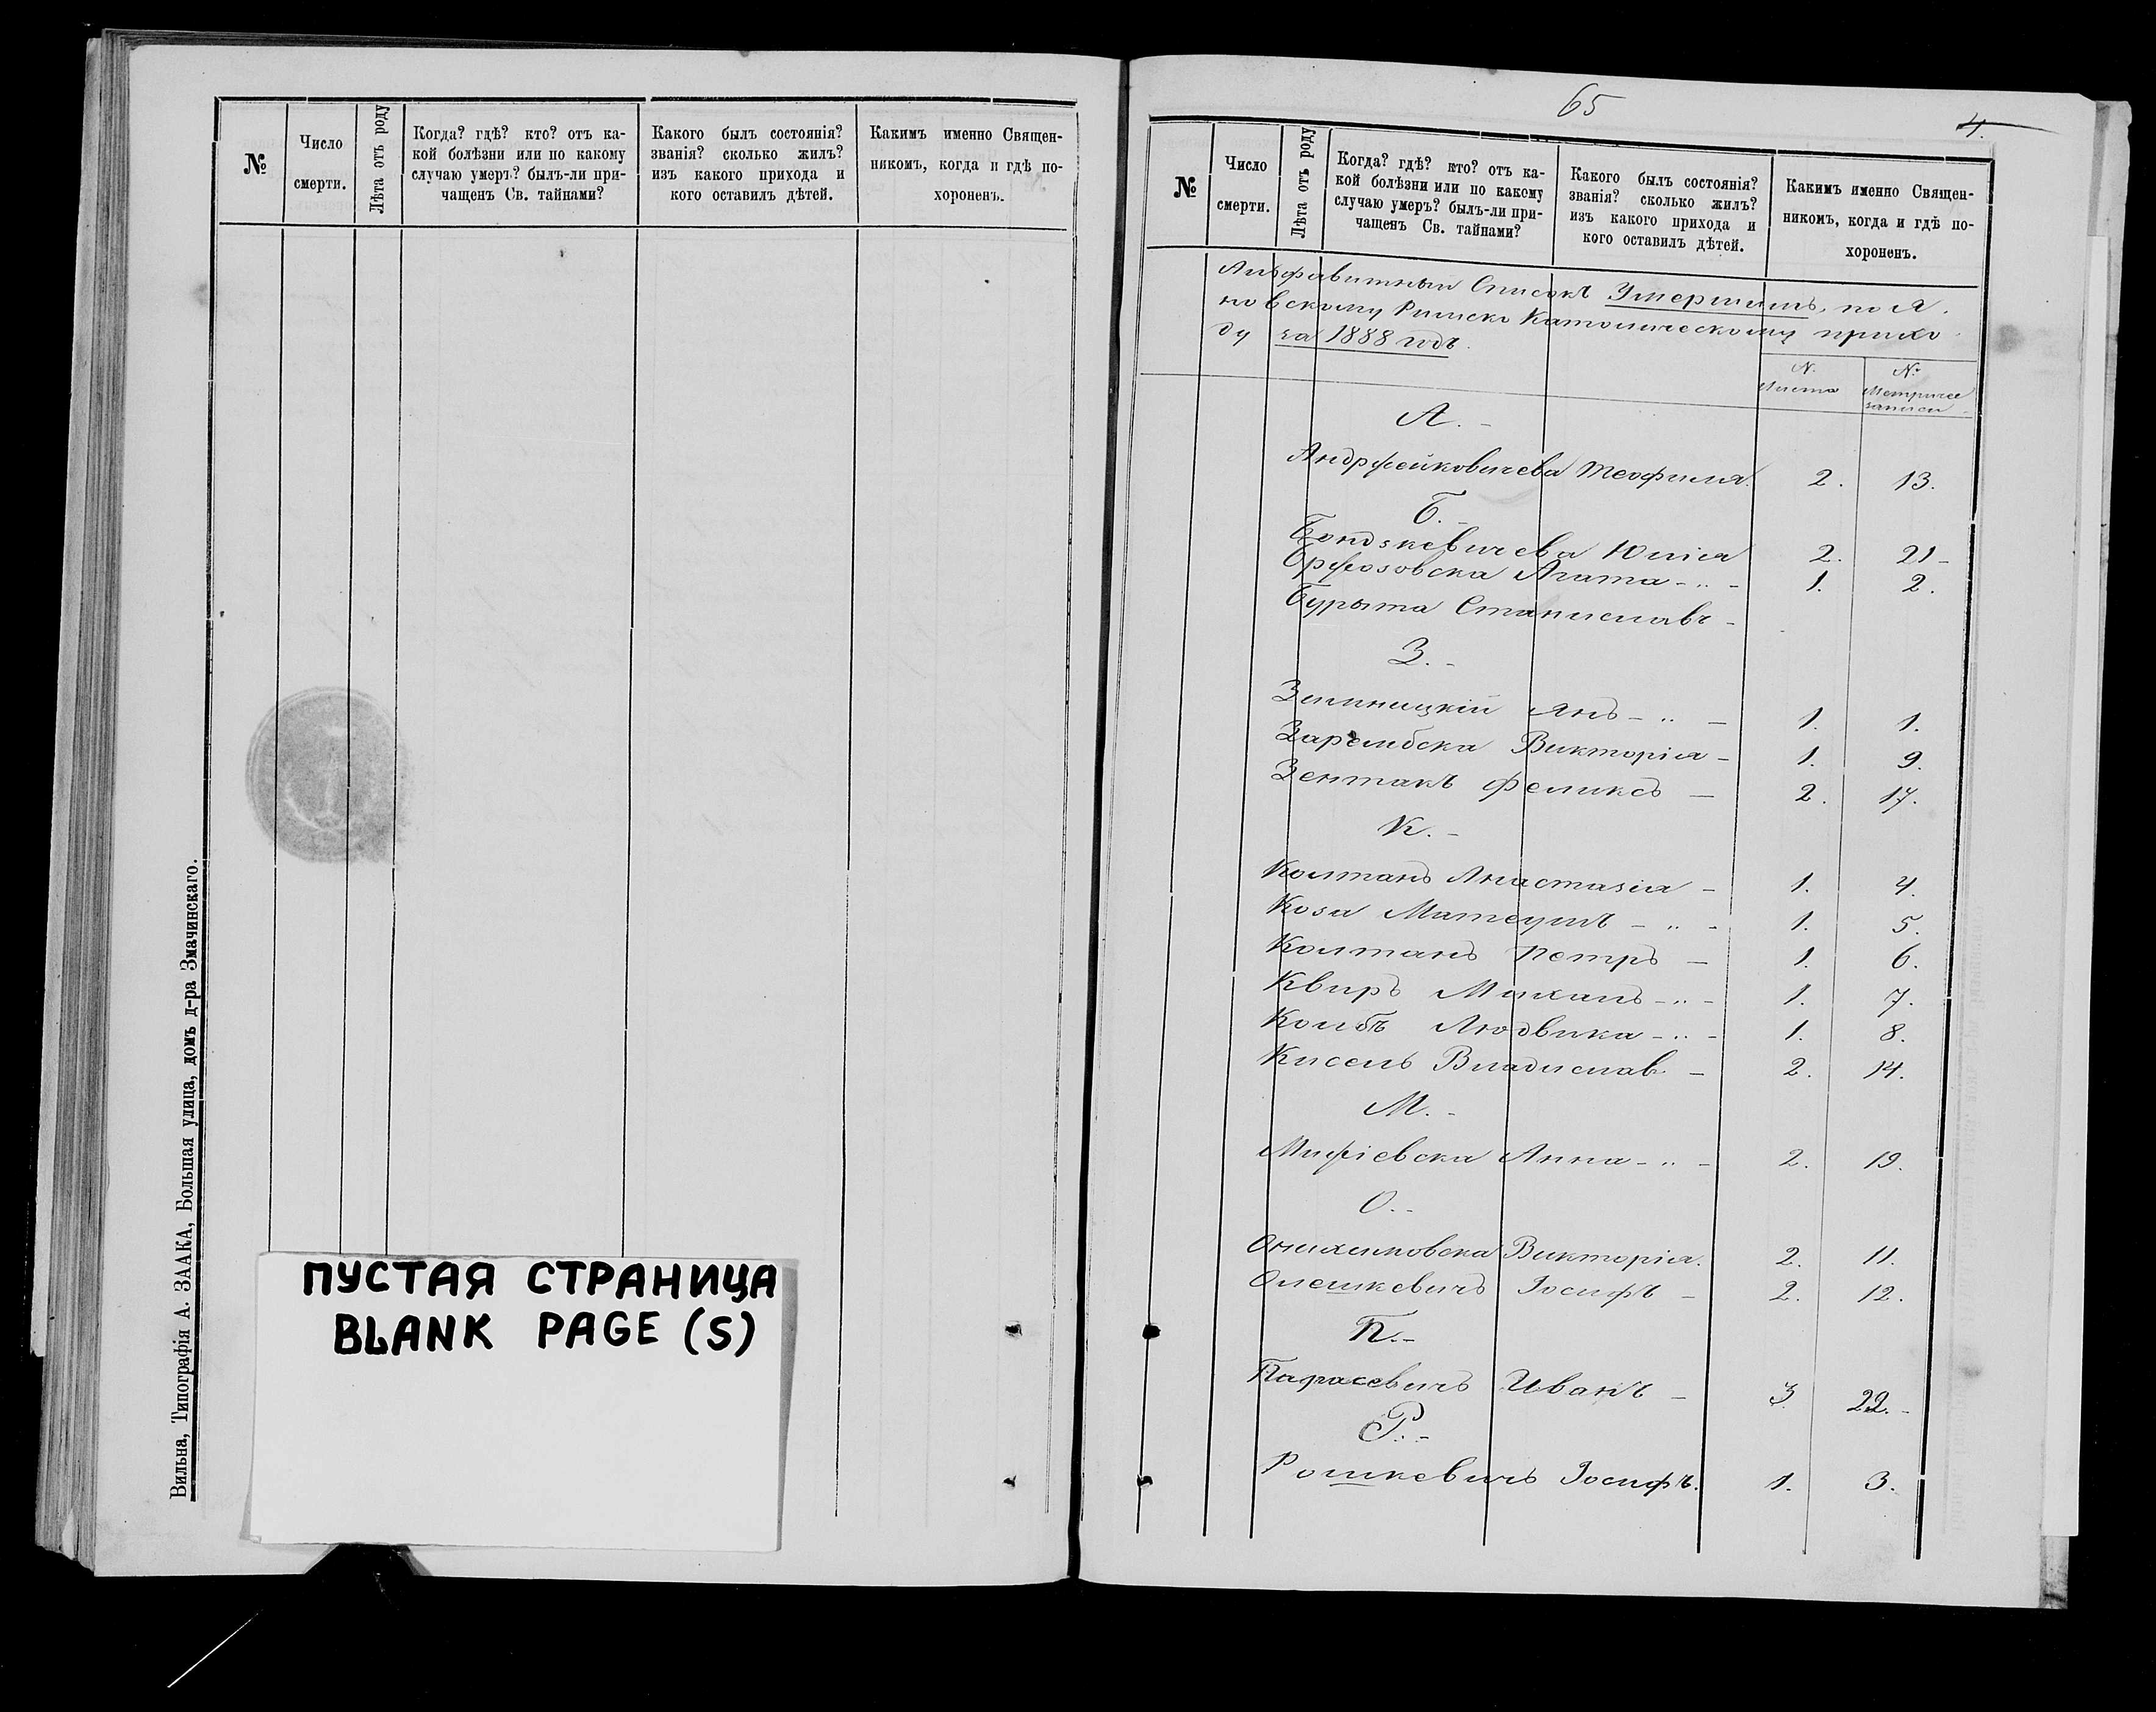 №
Число
смерти.
Лѣта отъ роду
Когда? гдѣ? кто? отъ ка-
кой болѣзни или по какому
случаю умеръ? былъ-ли при-
чащенъ Св. тайнами?
Какого былъ состоянія?
званія? сколько жилъ?
изъ какого прихода и
кого оставилъ дѣтей.
Какимъ именно Священ-
никомъ, когда и гдѣ по-
хороненъ.
Вильна, Типографія А. ЗААКА, Большая улица, домъ д-ра Змачинскаго.
ПУСТАЯ СТРАНИЦА
BLANK PAGE (S)
65
4.
№
Число
смерти.
Лѣта отъ роду
Когда? гдѣ? кто? отъ ка-
кой болѣзни или по какому
случаю умеръ? былъ-ли при-
чащенъ Св. тайнами?
Какого былъ состоянія?
званія? сколько жилъ?
изъ какого прихода и
кого оставилъ дѣтей.
Какимъ именно Священ-
никомъ, когда и гдѣ по-
хороненъ.
Альфавитный Списокъ Умершимъ, по Я-
новскому Римско Католическому прихо-
ду за 1888 годъ.
N. Листа
№ Метричес записи
А. -
Теофиля 2. 13.
Б. -
Юлія 2. 21 -
Агата - .. - 1. 2.
Бурыта Станиславъ -
З. -
Зелинскій Янъ - .. - 1. 1.
Зарембска Викторія - 1. 9.
Зентакъ Феликсъ - 2. 17.
К. -
Колтанъ Анастазія - 1. 4.
Коза Матеушъ - .. - 1. 5.
Колтанъ Петръ - 1. 6.
Квиръ Михалъ - .. - 1. 7.
Колбъ Людвика - .. - 1. 8.
Кисель Владислав - 2. 14.
М. -
Анна - .. - 2. 19.
О. -
Викторія. 2. 11.
Олешкевичъ Іосифъ - 2. 12.
П. -
Иванъ - 3 22. -
Р. -
Рошкевичъ Іосифъ. 1. 3.